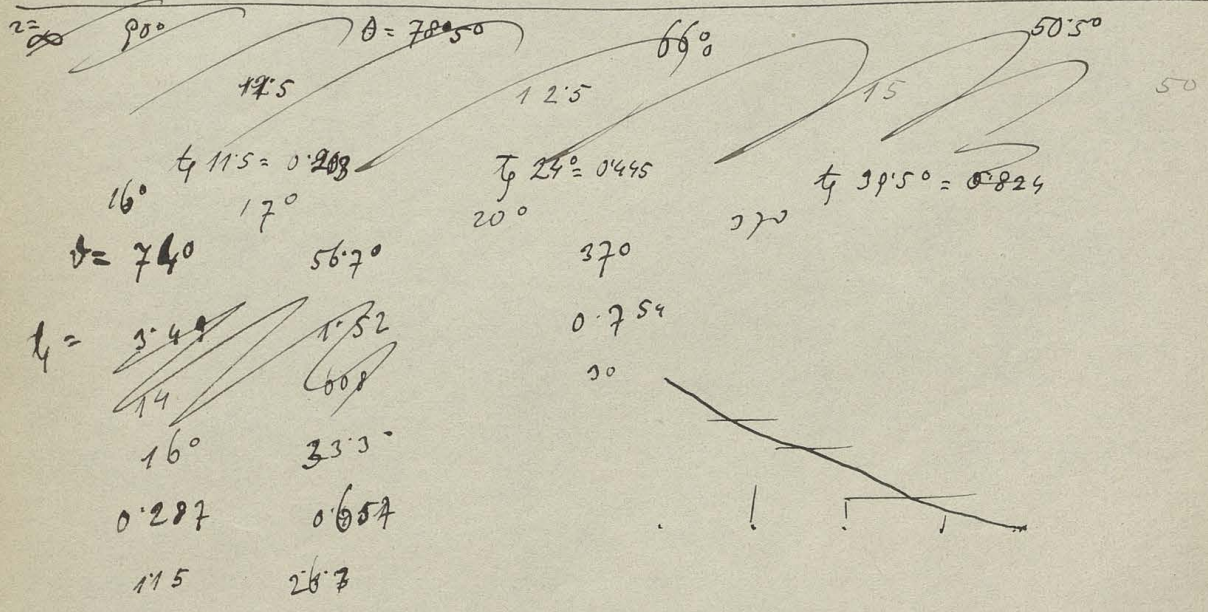 90° θ = 78°50 66° 50·5°
12·5 15 50
tg 11·5 = 0·203 tg 24° = 0·445 tg 39·5° = 0·824
16° 17° 20° 37°
ϑ = 74° 56·7° 37°
tg = 3·49 1·52 0·754
14 608 30
16° 33·3°
0·287 0·657
115 26·3